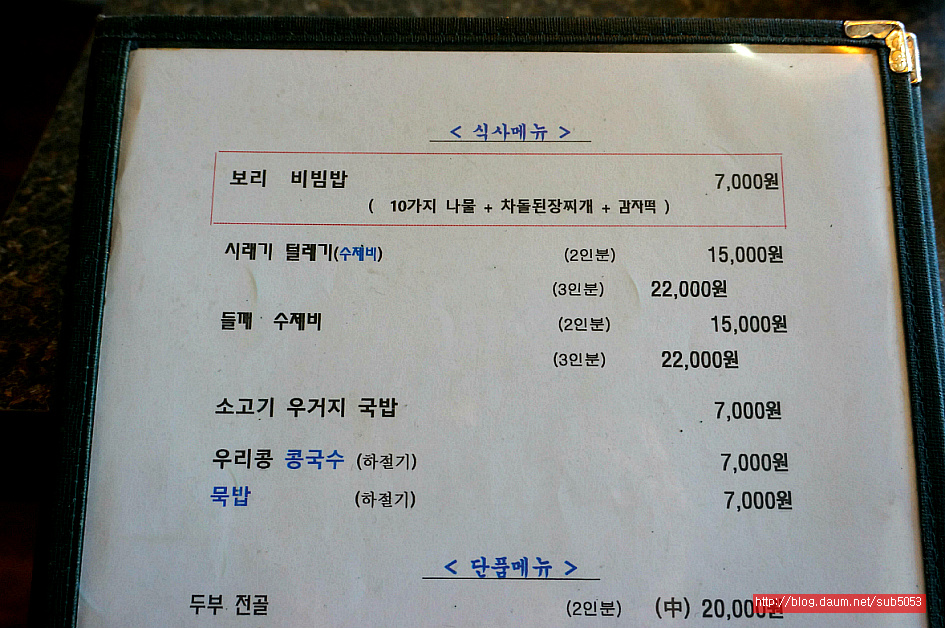 < 식사메뉴 >
보리 비빔밥 7,000원
( 10가지 나물 + 차돌된장찌개 + 감자떡 )
시래기 털레기(수제비) (2인분) 15,000원
(3인분) 22,000원
들깨 수제비 (2인분) 15,000원
(3인분) 22,000원
소고기 우거지 국밥 7,000원
우리콩 콩국수 (하절기) 7,000원
묵밥 (하절기) 7,000원
< 단품메뉴 >
두부 전골 (2인분) (中) 20,000원
http://blog.daum.net/sub5053